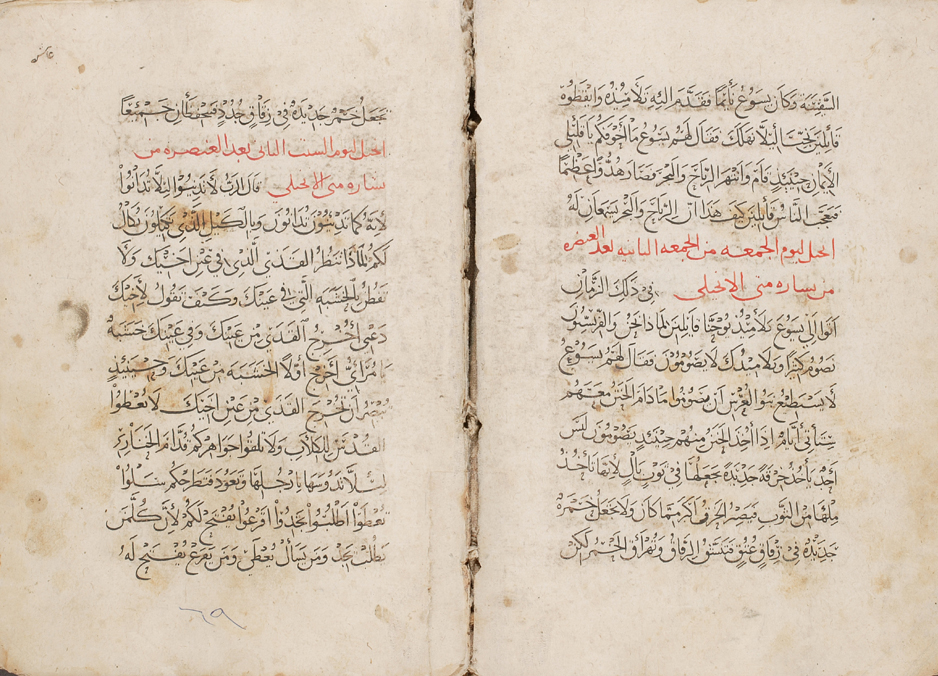 السفينة وكان يسوع نائما فتقدم اليه تلاميذه وايقظوه
قايلين نجنا ليلا نهلك فقال لهم يسوع ما اخوفكم يا قليلي
الايمان حينيذٍ قام وانتهر الرياح والبحر فصار هدوًا عظيمًا
فعجب الناس قايلين كيف هذا ان الرياح والبحر يسمعان له
انجيل ليوم الجمعه من الجمعه الثانيه بعد العنصره
من بشاره متى الانجيلي في ذلك الزمان
اتوا الى يسوع تلاميذ يوحنا قايلين لماذا نحن والفريسيون
نصوم كثيرًا وتلاميذك لا يصومون فقال لهم يسوع
لا يستطيع بنوا العرس ان يصوموا ما دام الختن معهم
ستأتي أيام اذا أُخذ الختن منهم حينيذٍ يصومون ليس
أحد يأخذ خرقة جديدة يجعلها في ثوب بالٍ لأنها تأخذ
ملئها من الثوب فيصير الخرق اكثر مما كان ولا تجعل خمرة
جديدة في زقاق عتق فتنشق الزقاق وتهراق الخمر لكن
تجعل خمر جديده في زقاق جدد فتحفظان جميعًا
انجيل ليوم السبت الثاني بعد العنصره من
بشاره متى الانجيلي قال الرب لا تدينوا ليلا تدانوا
لانه كما تدينون تدانون وبالكيل الذي تكيلون يكال
لكم لماذا تنظر القذى الذي في عين اخيك ولا
تفطن بالخشبه التي في عينك وكيف تقول لأخيك
دعني أُخرج القذى من عينك وفي عينك خشبه
يا مرائي أخرج أولًا الخشبه من عينك وحينيذٍ
تبصر ان تخرج القذى من عين اخيك لا تعطوا
القدس للكلاب ولا تلقوا جواهركم قدام الخنازير
ليلا تدوسها بارجلها وتعود فتطرحكم سلوا
تعطوا اطلبوا تجدوا اقرعوا يفتح لكم لأن كل من
يطلب يجد ومن يسأل يُعطى ومن يقرع يفتح له
٦٩